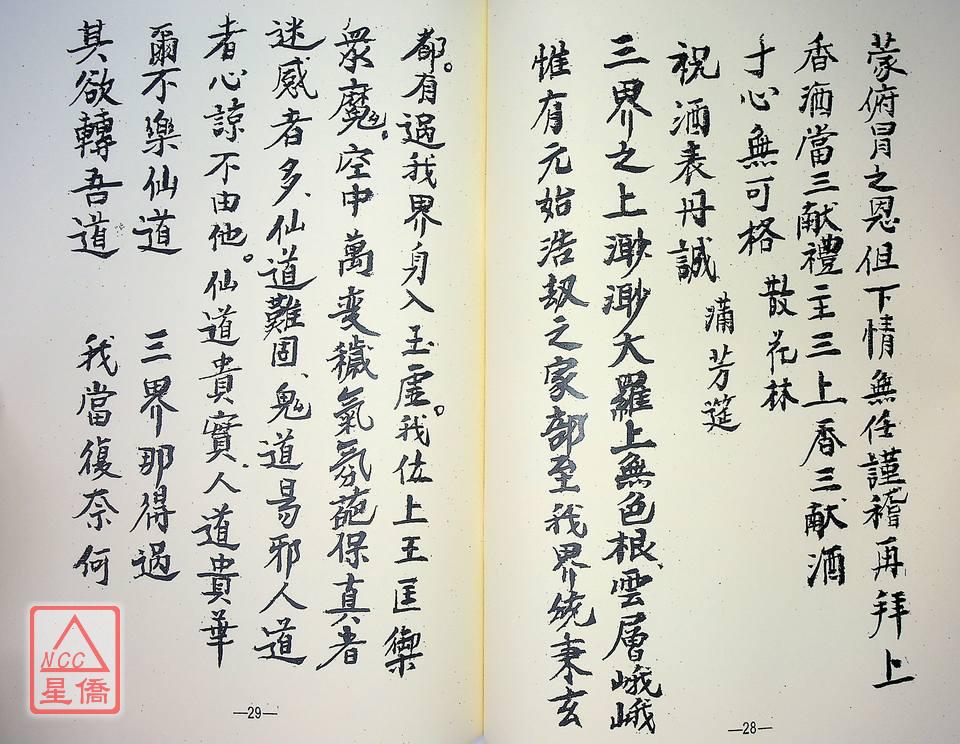 蒙俯冒之恩但下情無任謹稽再拜上
香酒當三献禮主三上香三献酒
于心無可格 散花林
滿芳筵
祝酒表丹誠
三界之上渺渺大羅上無色根雲層峨峨
惟有元始浩刼之家部至我界統秉玄
—28—
都。有過我界身入玉虛。我位上王匡御
衆魔。空中萬變穢氣氛葩保真者
迷惑者多、仙道難固、鬼道易邪人道
者心諒不由他。仙道貴實、人道貴華
爾不樂仙道 三界那得過
其欲轉吾道 我當復奈何
—29—
NCC
星僑